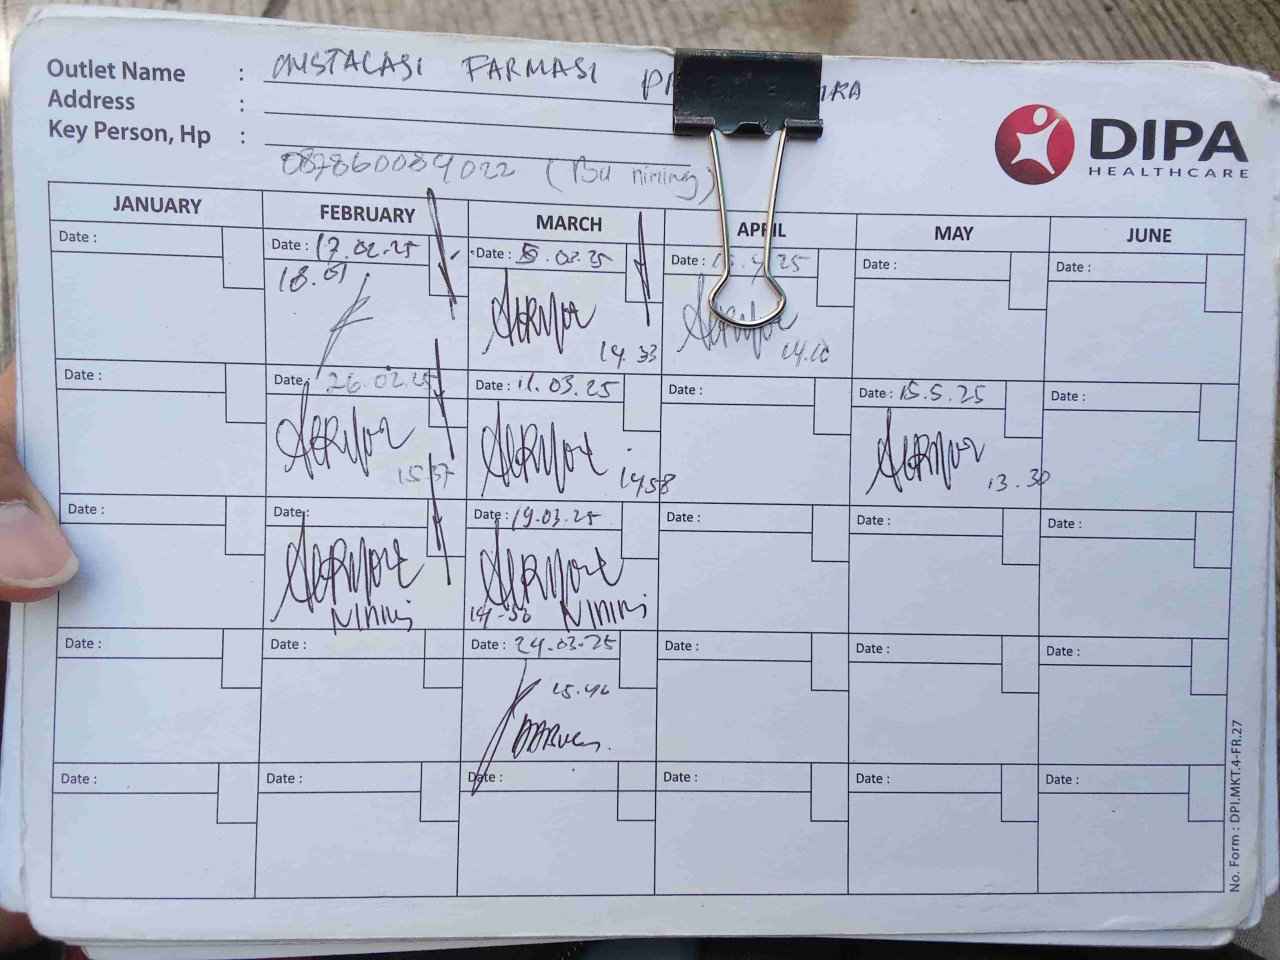 Outlet Name : INSTALASI FARMASI
Address :
Key Person, Hp :
087860089022 (Bu nining)
DIPA
HEALTHCARE
JANUARY FEBRUARY MARCH APRIL MAY JUNE
Date : Date : 17.02.25 Date : 5.03.25 Date : 25 Date : Date :
18.01
14.33 14.10
Date : Date : 26.02.25 Date : 11.03.25 Date : Date : 15.5.25 Date :
15.37 14.58 13.30
Date : Date : Date : 19.03.25 Date : Date : Date :
Nining 14-56 Nining
Date : Date : Date : 24.03.25 Date : Date : Date :
Date : Date : Date : Date : Date : Date :
No. Form : DPI.MKT.4-FR.27